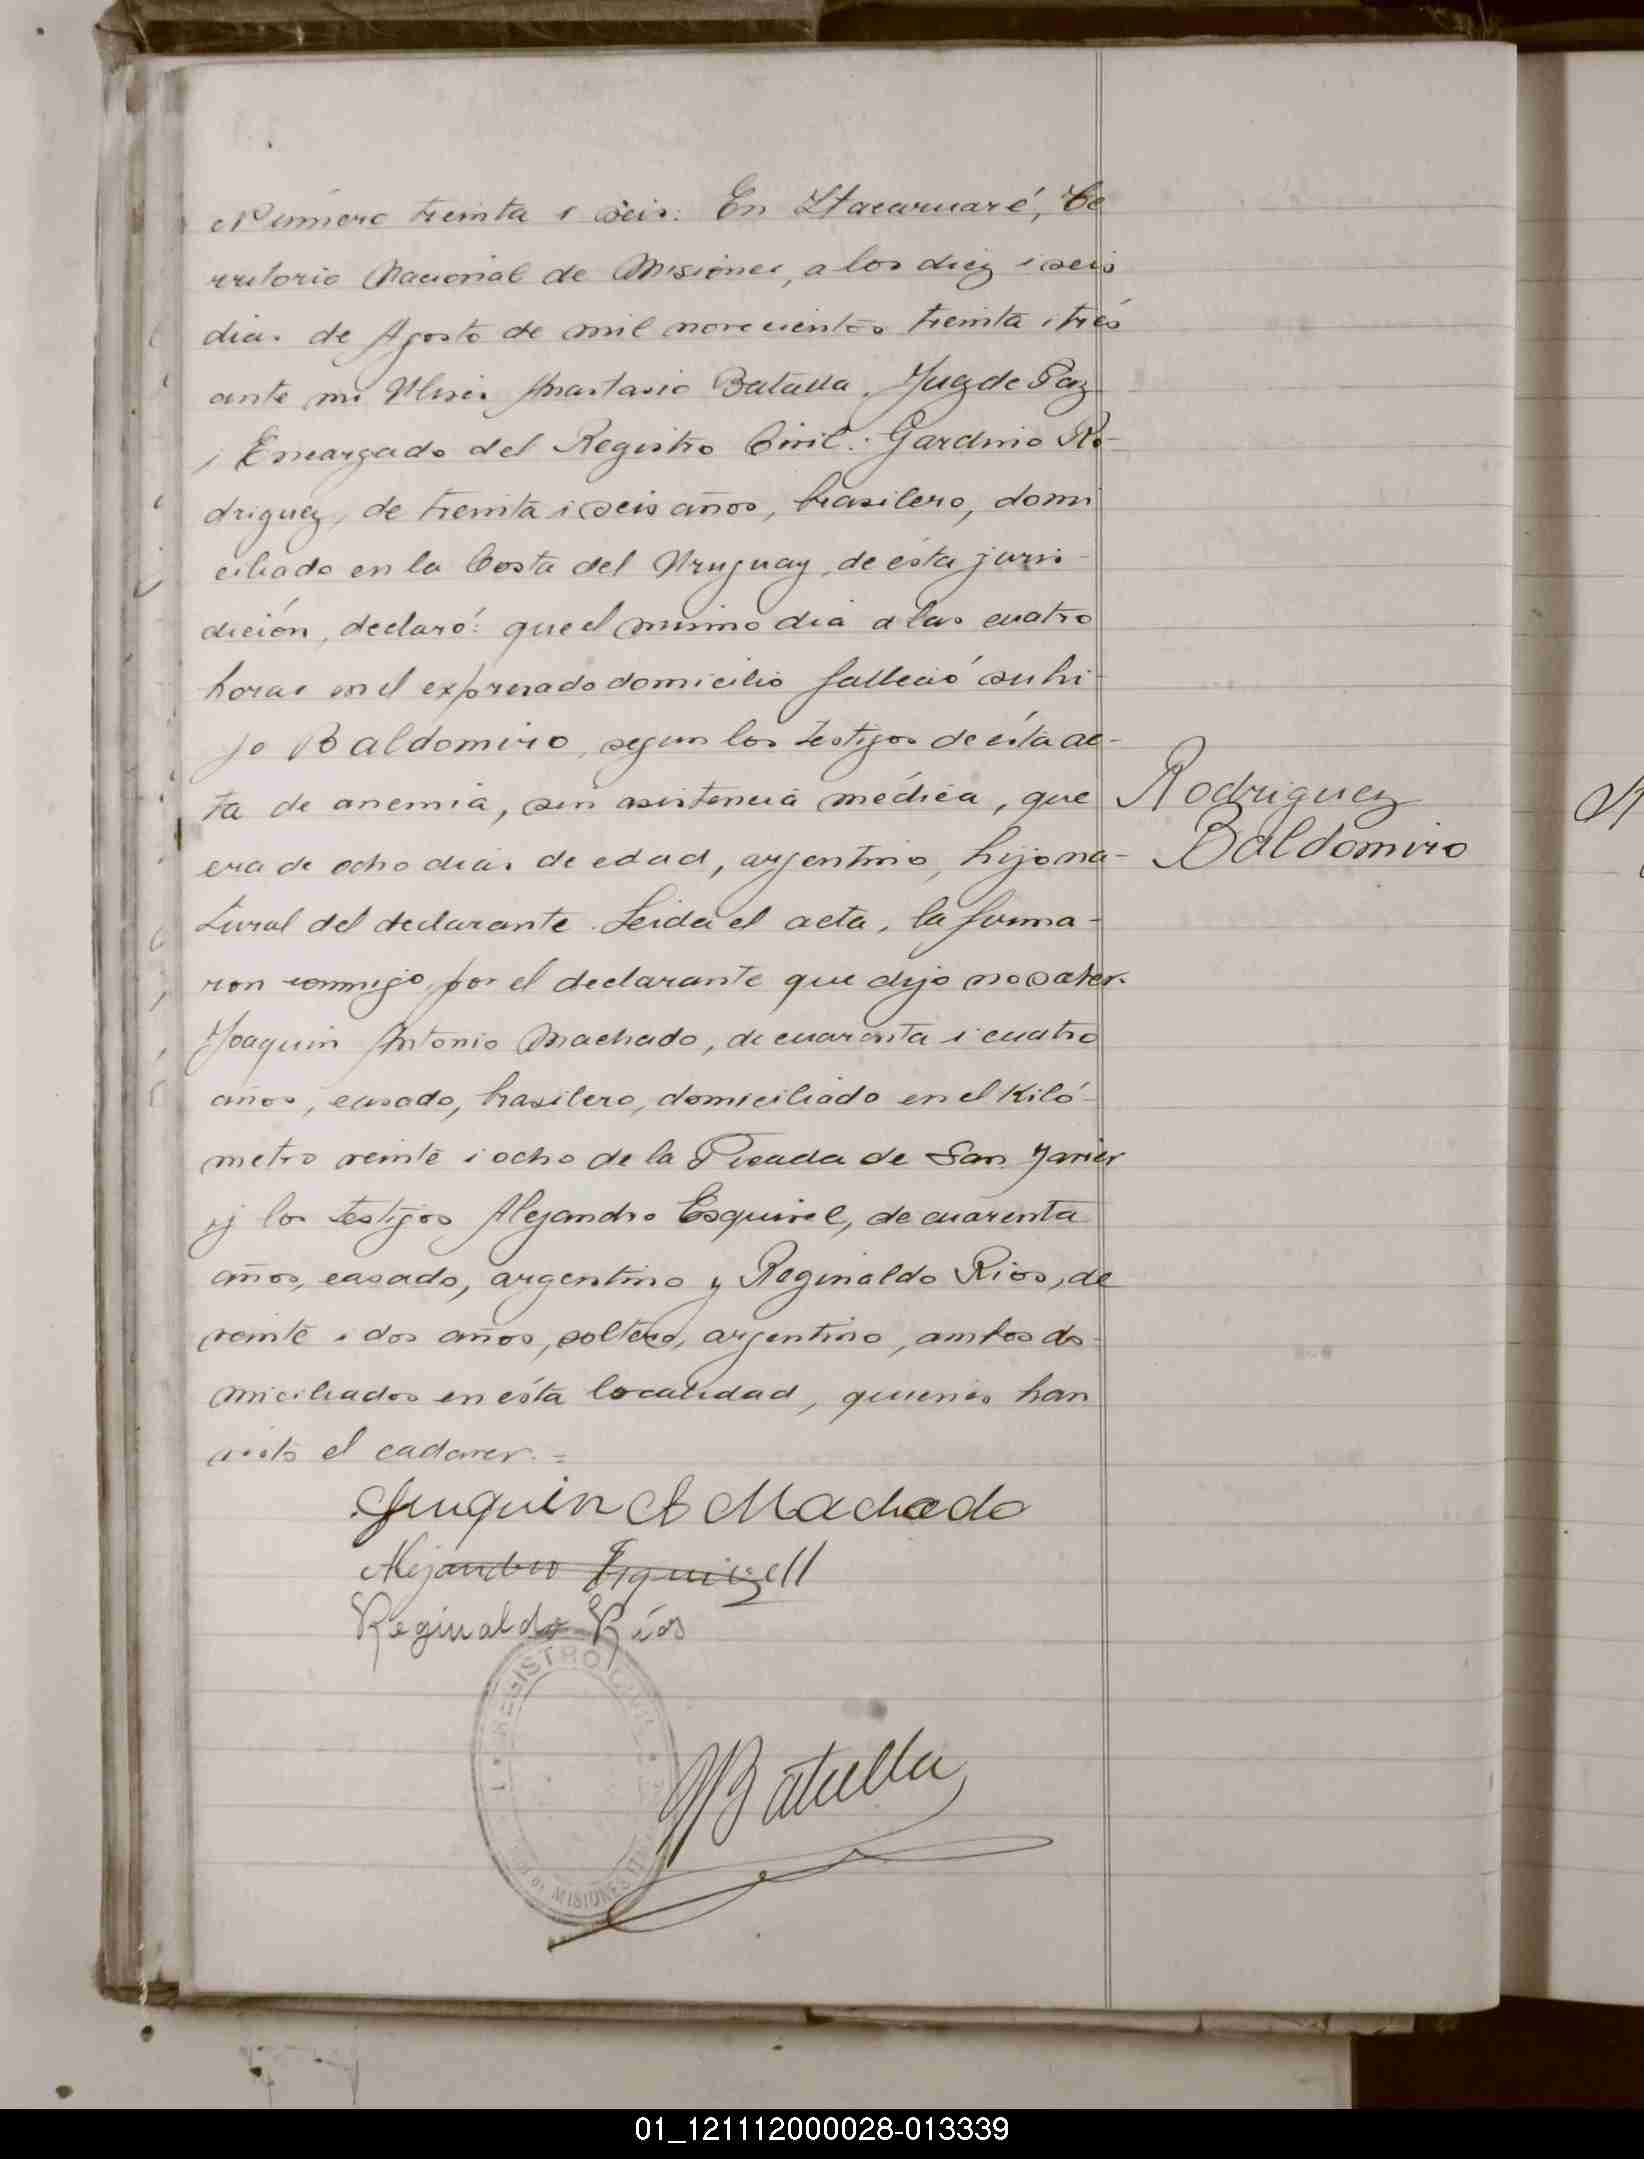 Número treinta i seis: En Itacaruaré, Te
rritorio Nacional de Misiones, a los diez i seis
dias de Agosto de mil novecientos treinta i trés
ante mi Anastasio Batalla, Juez de Paz
i Encargado del Registro Civil: Gardino Ro-
driguez, de treinta i seis años, brasilero, domi
ciliado en la Costa del Uruguay, de ésta juris-
dición, declaró: que el mismo dia a las cuatro
horas en el expresado domicilio falleció su hi-
jo Baldomiro, segun los testigos de ésta ac-
ta de anemia, sin asistencia médica, que
era de ocho dias de edad, argentino, hijo na-
tural del declarante. Leida el acta, la firma-
ron conmigo, por el declarante que dijo no saber.
Joaquin Antonio Machado, de cuarenta i cuatro
años, casado, brasilero, domiciliado en el Kiló-
metro veinte i ocho de la Picada de San Javier
y los testigos Alejandro Esquivel, de cuarenta
años, casado, argentino y Reginaldo Rios, de
veinte i dos años, soltero, argentino, ambos do-
miciliados en ésta localidad, quienes han
visto el cadaver.=
Rodriguez
Baldomiro
Juaquin A Machado
Alejandro Esquivell
Reginaldo Ríos
REGISTRO CIVIL
MISIONES
Batalla
01_121112000028-013339